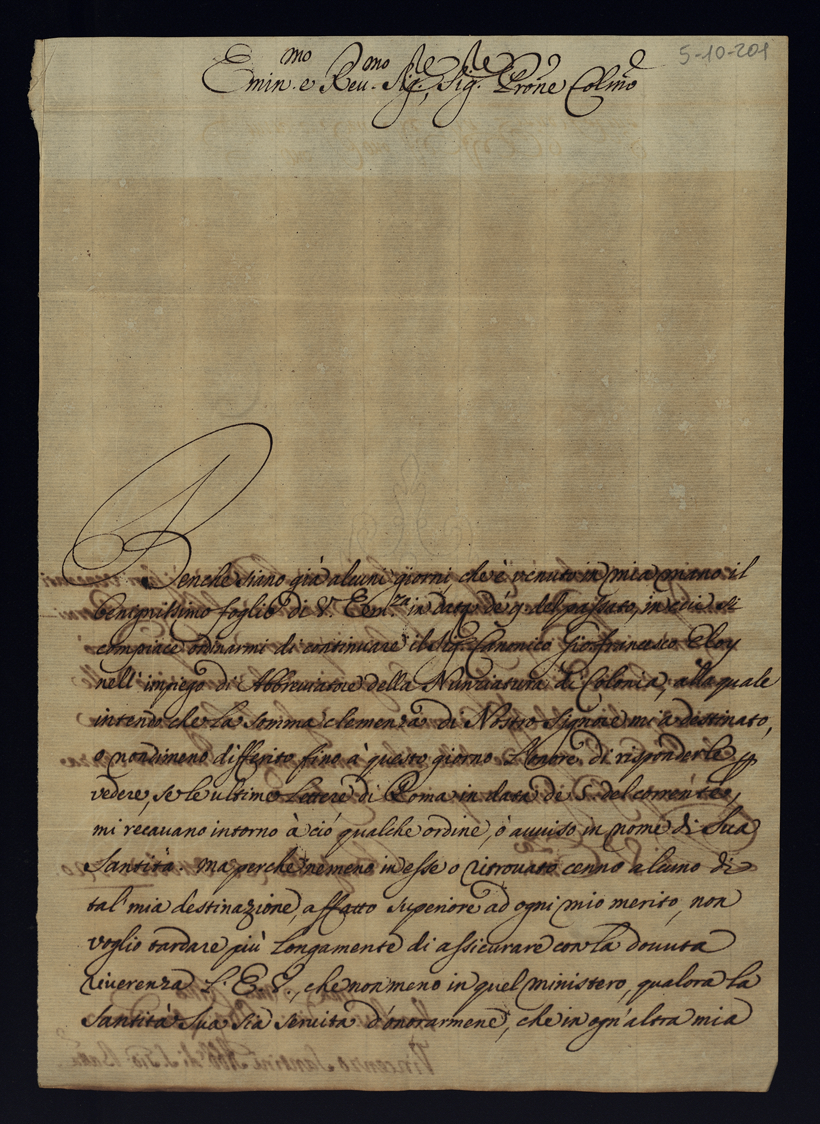 5-10-201
Emin.mo e Reu.mo Sig.re, Sig.re Prone Colmo
Benche siano già alcuni giorni, che è venuto in mia mano il
benignissimo foglio di V. Em.za in data de 9. del passato, in cui si
compiace ordinarmi di continuare il Sig. Canonico Gionfrincesco Eloy
nell' impiego di Abbreviatore della Nunziatura di Colonia, alla quale
intendo che la somma clemenza di Nostro Signore mi à destinato,
o nondimeno differito fino à questo giorno l'onore di risponderle p
vedere, se le ultime Lettere di Roma in data de 5. del corrente,
mi recavano intorno à ciò qualche ordine, ò avviso in nome di Sua
Santità. ma perche nemeno in esse o ritrovato cenno alcuno di
tal' mia destinazione, affatto superiore ad ogni mio merito, non
voglio tardare più longamente di assicurare con la dovuta
riverenza L'E. V., che non meno in quel ministero, qualora la
Santità Sua sia servita d'onorarmene, che in ogn' altra mia